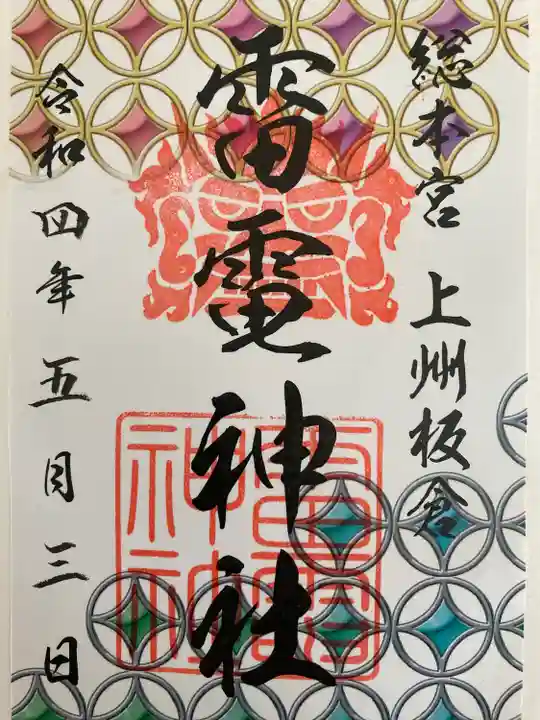 総本宮 上州板倉
雷電神社
令和四年五月三日
雷電神社